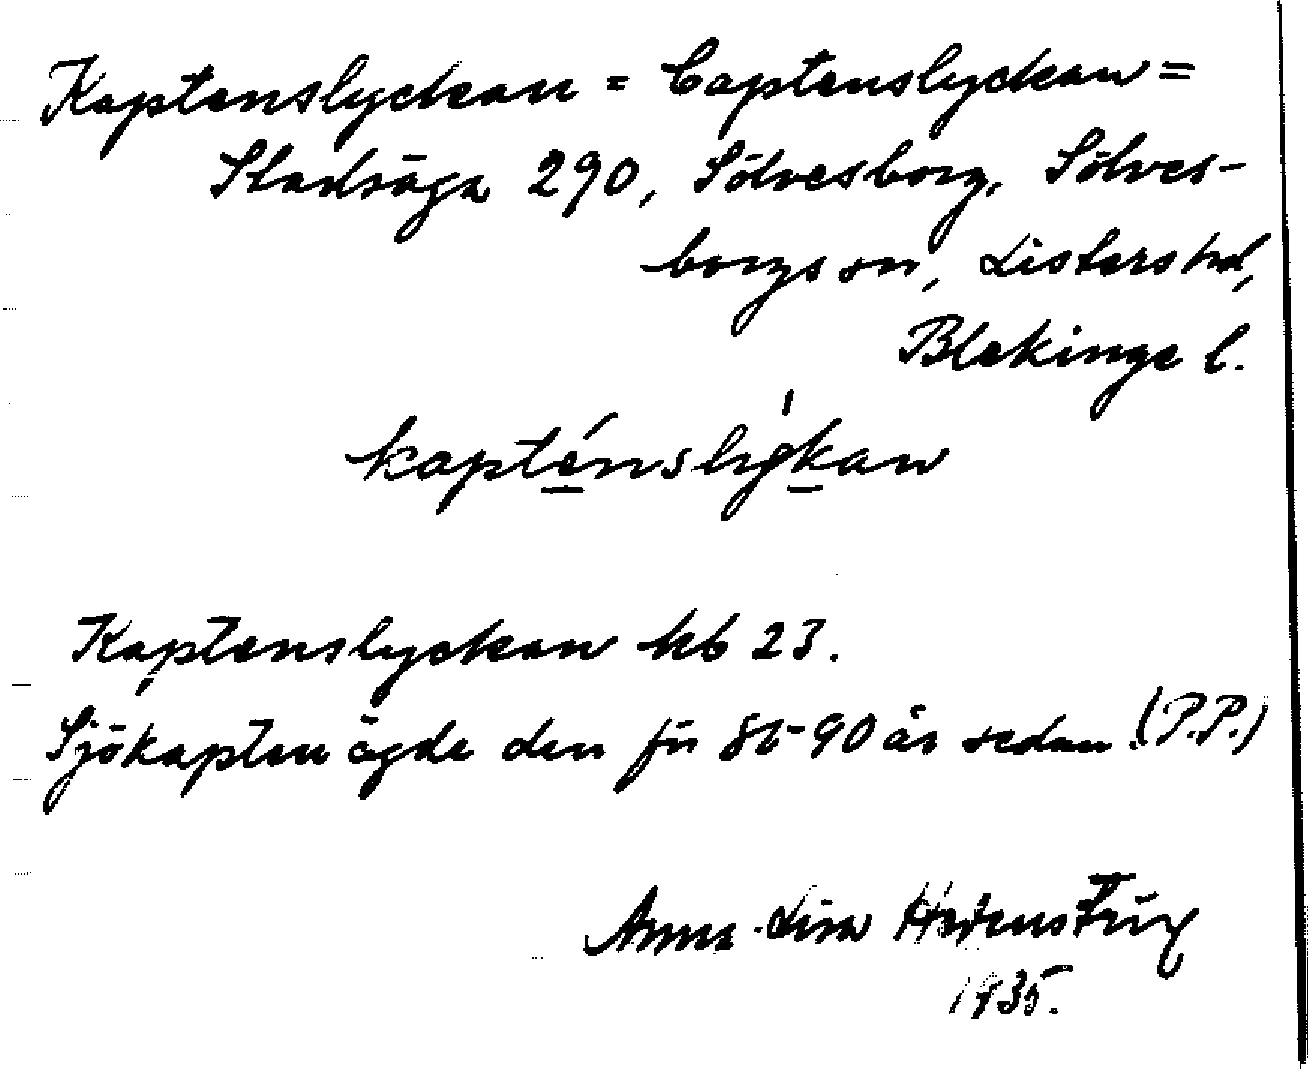 Kaptenslyckan = Captenslyckan =
Stadsäga 290, Sölvesborg, Sölves-
borgs sn, Listers hd,
Blekinge l.
kapténslýkan
Kaptenslyckan kb 23.
Sjökapten ägde den för 80-90 år sedan. (P.P.)
Anna-Lisa
1935.